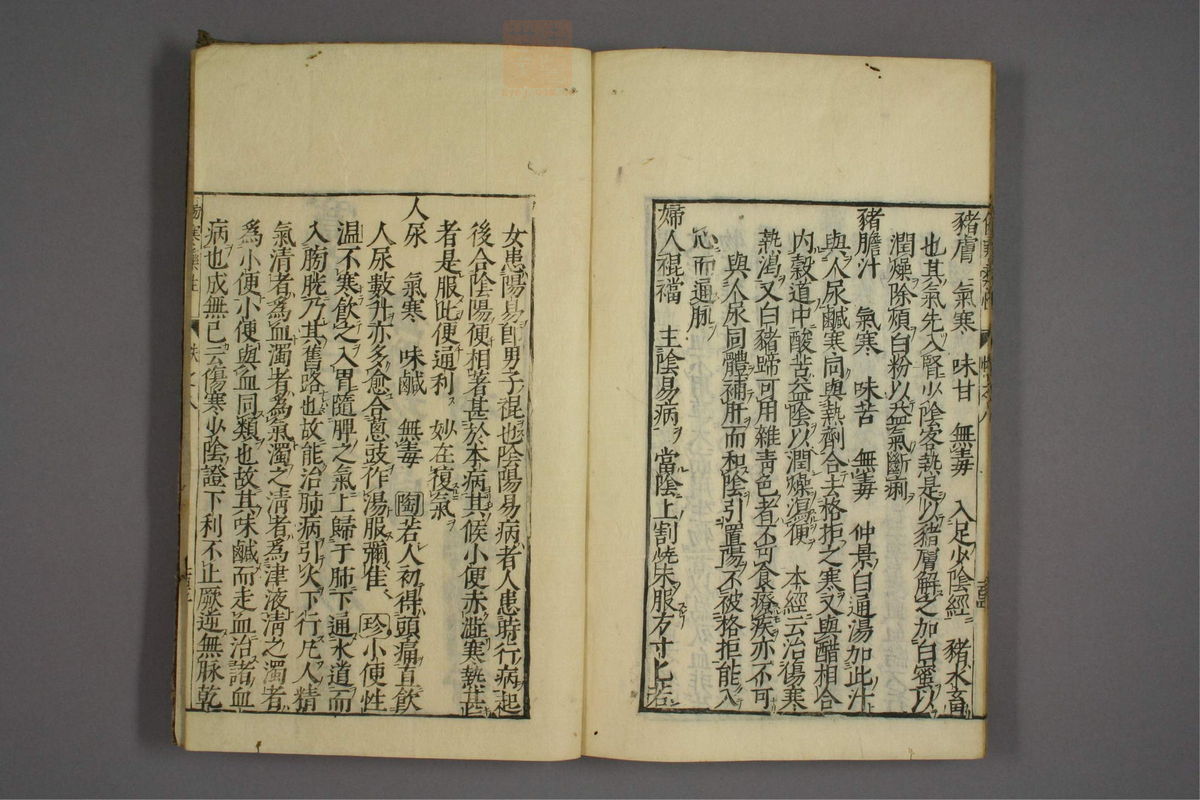 豬膚　氣寒　味甘　無毒　入足少陰經　豬水畜
也其氣先入腎少陰客熱是以豬膚解之加白蜜以
潤燥除煩白粉以益氣斷痢
豬膽汁　氣寒　味苦　無毒　仲景曰通湯加此汁
與人尿鹹寒同與熱劑合去格拒之寒又與醋相合
內穀道中酸苦益陰以潤燥瀉便　本經云治傷寒
熱渴又白豬蹄可用雜青色者不可食療疾亦不可
與人尿同體補肝而和陰引置陽不被格拒能入
心而通脈
婦人裩襠　主陰易病　當陰上割燒末服方寸匕若
女患陽易即男子裩也陰陽易病者人患時行病起
後合陰陽便相著甚於本病其候小便赤澁寒熱甚
者是服此便通利　妙在復氣
人尿　氣寒　味鹹　無毒　陶若人初得頭痛直飲
人尿數升亦多愈合蔥豉作湯服彌佳　珍小便性
温不寒飲之入胃隨脾之氣上歸于肺下通水道而
入膀胱乃其舊路也故能治肺病引火下行凡人精
氣清者為血濁者為氣濁之清者為津液清之濁者
為小便小便與血同類也故其味鹹而走血治諸血
病也成無已云傷寒少陰證下利不止厥逆無脉乾